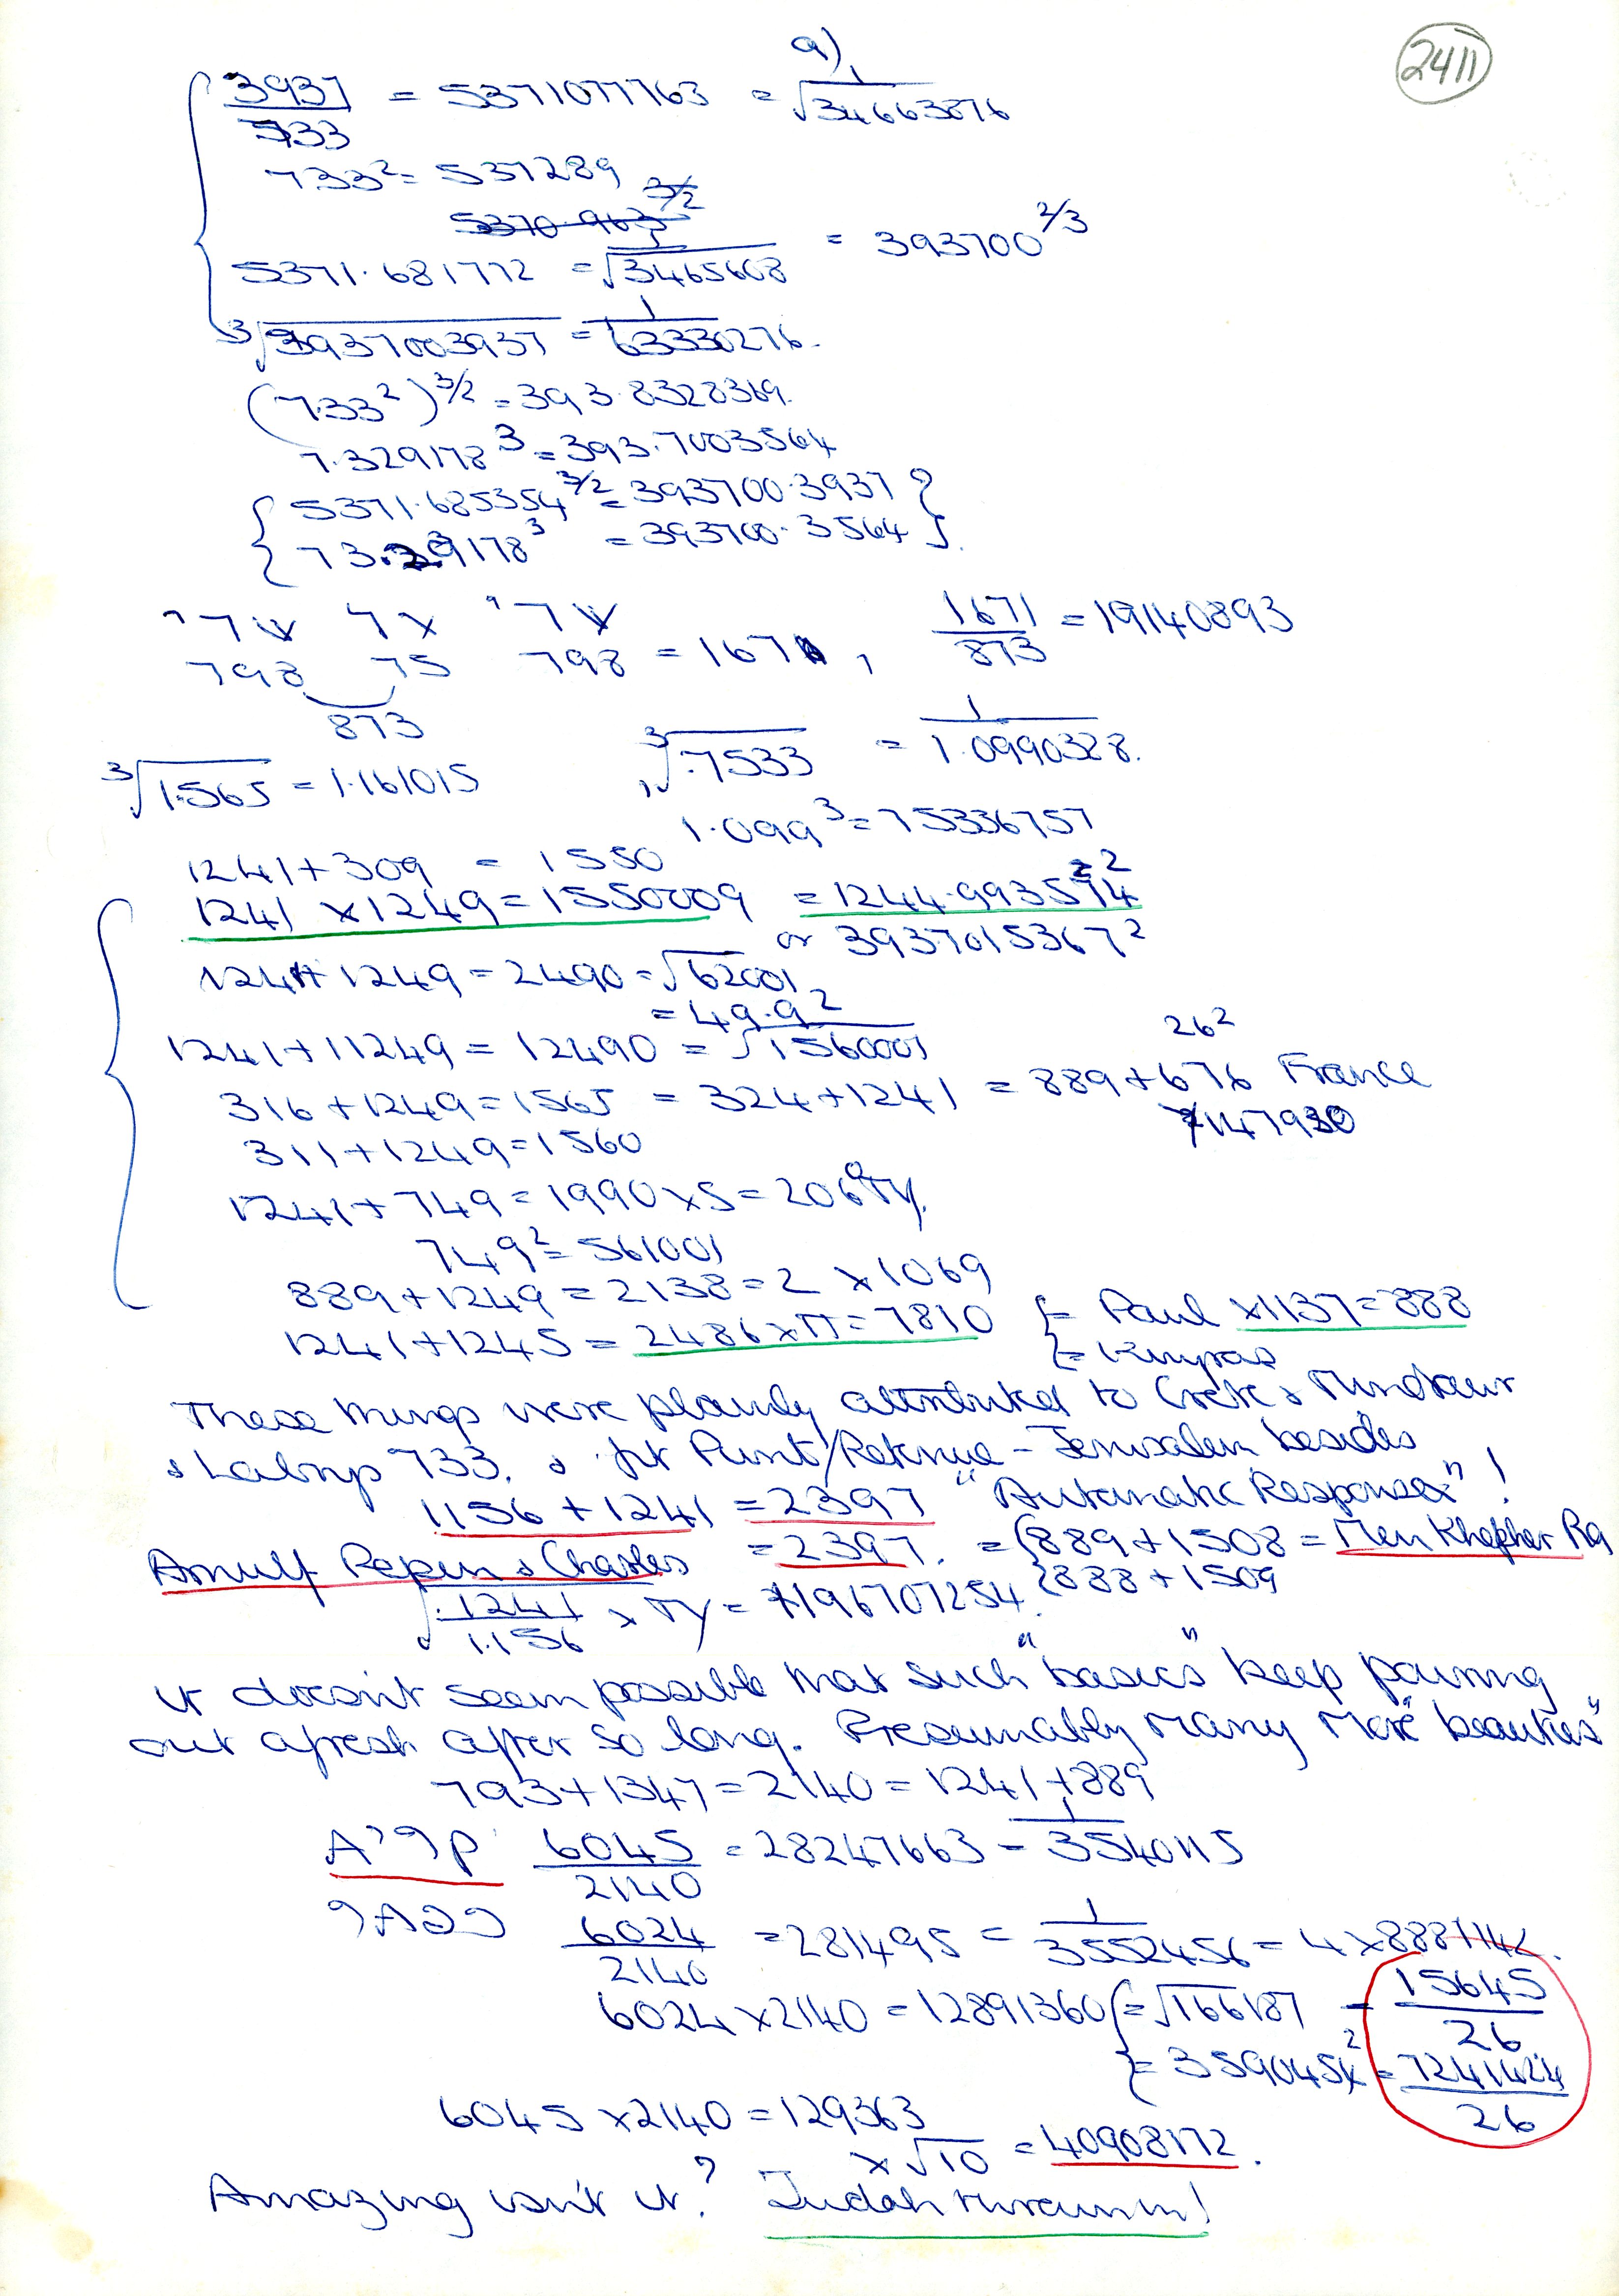 9)
2411
3937/733 = 5371077763 = 1/√34663876
733² = 537289
5370.963^3/2
5371.681772 = 1/√3465608 = 393700^2/3
³√3937003937 = 1/63330276.
(7.33²)^3/2 = 393.8328369.
7.329178³ = 393.7003564
{ 5371.685354^3/2 = 393700.3937 }
{ 73.29178³ = 393700.3564 }
798 75 798 = 1671, 1671/873 = 19140893
873
³√1.565 = 1.161015 ³√.7533 = 1/1.0990328.
1.099³ = 75336757
1241 + 309 = 1550
1241 × 1249 = 1550009 = 1244.993574²
or 3937015367²
1241 + 1249 = 2490 = √62001
= 49.9²
1241 + 11249 = 12490 = √1560001
26²
316 + 1249 = 1565 = 324 + 1241 = 889 + 676 France
7147930
311 + 1249 = 1560
1241 + 749 = 1990 × 5 = 206
749² = 561001
889 + 1249 = 2138 = 2 × 1069
1241 + 1245 = 2486 × π = 7810 { = Paul × 1137 = 888
{ = Kinyras
These things were plainly attributed to Crete &
& Labrys 733. & for Punt/Retenue - Jerusalem besides
1156 + 1241 = 2397 "Automatic Responses"!
Arnulf Pepin & Charles = 2397. = { 889 + 1508 = Men Khepher Ra
{ 888 + 1509
√.1241/1.156 × πy = 7196707254.
it doesn't seem possible that such "basics" keep pouring
out afresh after so long. Presumably many more "beauties"
793 + 1347 = 2140 = 1241 + 889
6045/2140 = 28247663 = 1/3540115
6024/2140 = 281495 = 1/3552456 = 4 × 8881142.
6024 × 2140 = 12891360 { = √166187 = 15645/26
{ = 3590454² = 7241424/26
6045 × 2140 = 129363
× √10 = 40908172.
Amazing isn't it? Judah